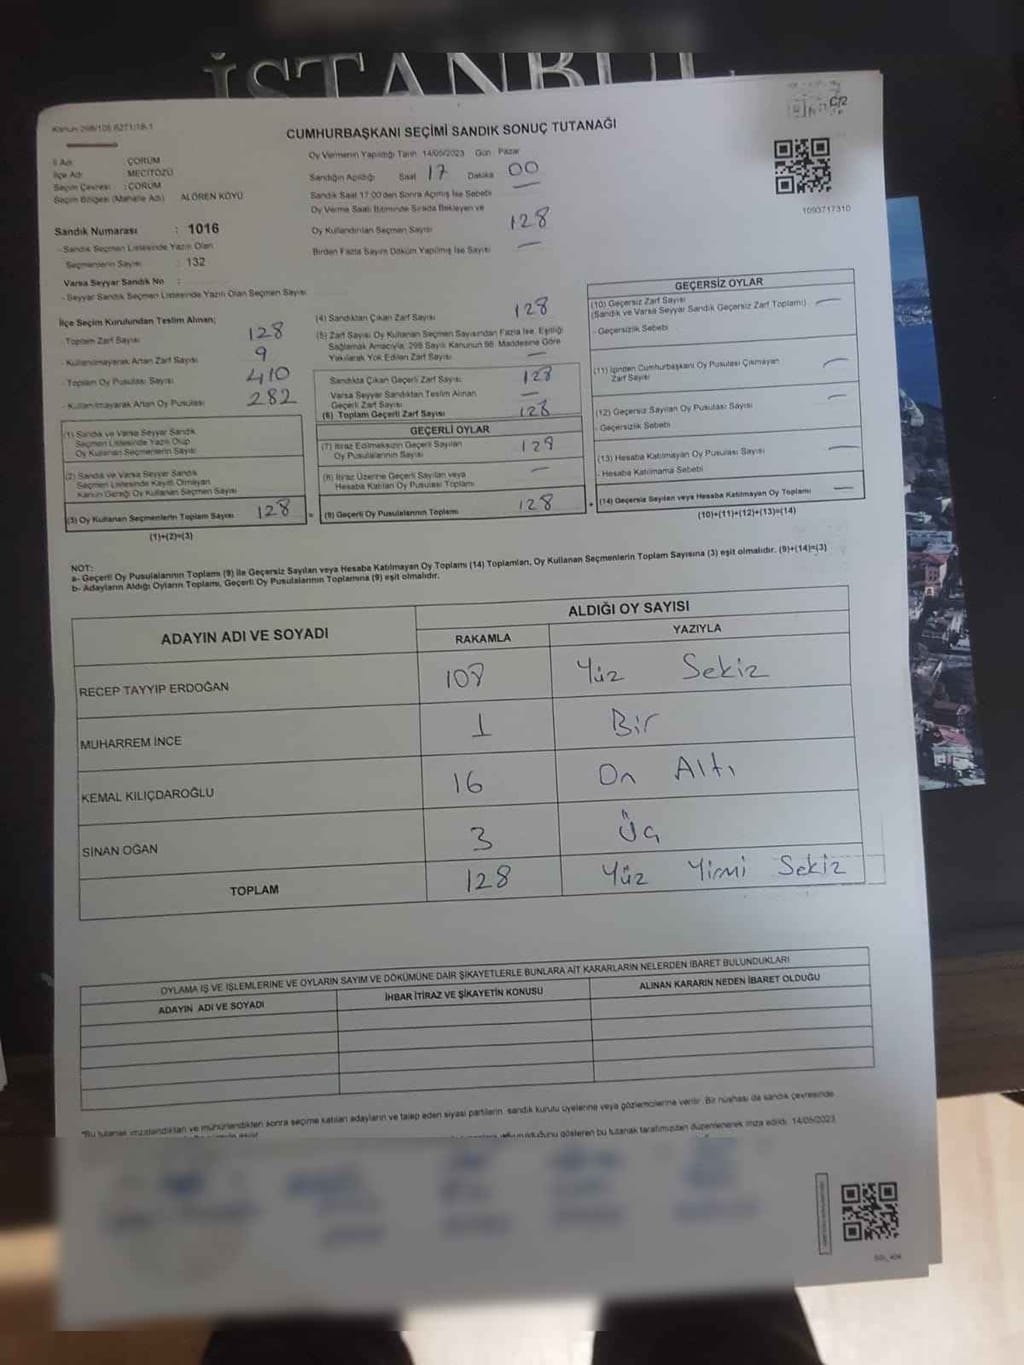 İSTANBUL
Kanun 298/105 6271/18-1
C/2
CUMHURBAŞKANI SEÇİMİ SANDIK SONUÇ TUTANAĞI
İl Adı : ÇORUM
İlçe Adı : MECİTÖZÜ
Seçim Çevresi : ÇORUM
Seçim Bölgesi (Mahalle Adı) ALÖREN KÖYÜ
Oy Vermenin Yapıldığı Tarih 14/05/2023 Gün Pazar
Sandığın Açıldığı Saat 17 Dakika 00
Sandık Saat 17.00'den Sonra Açılmış İse Sebebi —
Oy Verme Saati Bitiminde Sırada Bekleyen ve
Oy Kullandırılan Seçmen Sayısı 128
Birden Fazla Sayım Döküm Yapılmış İse Sayısı —
1093717310
Sandık Numarası : 1016
- Sandık Seçmen Listesinde Yazılı Olan
Seçmenlerin Sayısı : 132
Varsa Seyyar Sandık No :
- Seyyar Sandık Seçmen Listesinde Yazılı Olan Seçmen Sayısı
İlçe Seçim Kurulundan Teslim Alınan;
- Toplam Zarf Sayısı 128
- Kullanılmayarak Artan Zarf Sayısı 9
- Toplam Oy Pusulası Sayısı 410
- Kullanılmayarak Artan Oy Pusulası 282
(1) Sandık ve Varsa Seyyar Sandık
Seçmen Listesinde Yazılı Olup
Oy Kullanan Seçmenlerin Sayısı
(2) Sandık ve Varsa Seyyar Sandık
Seçmen Listesinde Kayıtlı Olmayan
Kanun Gereği Oy Kullanan Seçmen Sayısı
(3) Oy Kullanan Seçmenlerin Toplam Sayısı 128
(1)+(2)=(3)
(4) Sandıktan Çıkan Zarf Sayısı 128
(5) Zarf Sayısı Oy Kullanan Seçmen Sayısından Fazla İse, Eşitliği
Sağlamak Amacıyla, 298 Sayılı Kanunun 98. Maddesine Göre
Yakılarak Yok Edilen Zarf Sayısı —
Sandıkta Çıkan Geçerli Zarf Sayısı 128
Varsa Seyyar Sandıktan Teslim Alınan
Geçerli Zarf Sayısı —
(6) Toplam Geçerli Zarf Sayısı 128
GEÇERLİ OYLAR
(7) İtiraz Edilmeksizin Geçerli Sayılan
Oy Pusulalarının Sayısı 128
(8) İtiraz Üzerine Geçerli Sayılan veya
Hesaba Katılan Oy Pusulası Toplamı —
= (9) Geçerli Oy Pusulalarının Toplamı 128
GEÇERSİZ OYLAR
(10) Geçersiz Zarf Sayısı
(Sandık ve Varsa Seyyar Sandık Geçersiz Zarf Toplamı) —
- Geçersizlik Sebebi
(11) İçinden Cumhurbaşkanı Oy Pusulası Çıkmayan
Zarf Sayısı —
(12) Geçersiz Sayılan Oy Pusulası Sayısı —
- Geçersizlik Sebebi
(13) Hesaba Katılmayan Oy Pusulası Sayısı —
- Hesaba Katılmama Sebebi
+ (14) Geçersiz Sayılan veya Hesaba Katılmayan Oy Toplamı —
(10)+(11)+(12)+(13)=(14)
NOT:
a- Geçerli Oy Pusulalarının Toplamı (9) ile Geçersiz Sayılan veya Hesaba Katılmayan Oy Toplamı (14) Toplamları, Oy Kullanan Seçmenlerin Toplam Sayısına (3) eşit olmalıdır. (9)+(14)=(3)
b- Adayların Aldığı Oyların Toplamı, Geçerli Oy Pusulalarının Toplamına (9) eşit olmalıdır.
ADAYIN ADI VE SOYADI
ALDIĞI OY SAYISI
RAKAMLA YAZIYLA
RECEP TAYYIP ERDOĞAN 108 Yüz Sekiz
MUHARREM İNCE 1 Bir
KEMAL KILIÇDAROĞLU 16 On Altı
SİNAN OĞAN 3 Üç
TOPLAM 128 Yüz Yirmi Sekiz
OYLAMA İŞ VE İŞLEMLERİNE VE OYLARIN SAYIM VE DÖKÜMÜNE DAİR ŞİKAYETLERLE BUNLARA AİT KARARLARIN NELERDEN İBARET BULUNDUKLARI
ADAYIN ADI VE SOYADI İHBAR İTİRAZ VE ŞİKAYETİN KONUSU ALINAN KARARIN NEDEN İBARET OLDUĞU
"Bu tutanak imzalandıktan ve mühürlendikten sonra seçime katılan adayların ve talep eden siyasi partilerin sandık kurulu üyelerine veya gözlemcilerine verilir. Bir nüshası da sandık çevresinde
olduğunu gösteren bu tutanak tarafımızdan düzenlenerek imza edildi. 14/05/2023